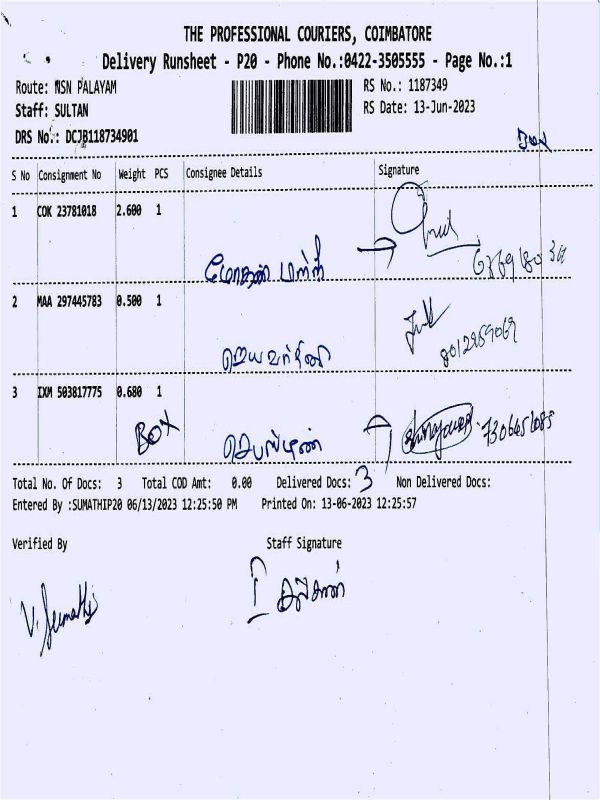 THE PROFESSIONAL COURIERS, COIMBATORE
Delivery Runsheet - P20 - Phone No.:0422-3505555 - Page No.:1
Route: NSN PALAYAM RS No.: 1187349
Staff: SULTAN RS Date: 13-Jun-2023
DRS No.: DCJB118734901
BOX
S No Consignment No Weight PCS Consignee Details Signature
1 COK 23781018 2.600 1
மோகன் மணி
2 MAA 297445783 0.500 1
ஜெயவர்தினி
3 IXM 503817775 0.680 1
BOX
Total No. Of Docs: 3 Total COD Amt: 0.00 Delivered Docs: 3 Non Delivered Docs:
Entered By :SUMATHIP20 06/13/2023 12:25:50 PM Printed On: 13-06-2023 12:25:57
Verified By Staff Signature
V. Sumathi